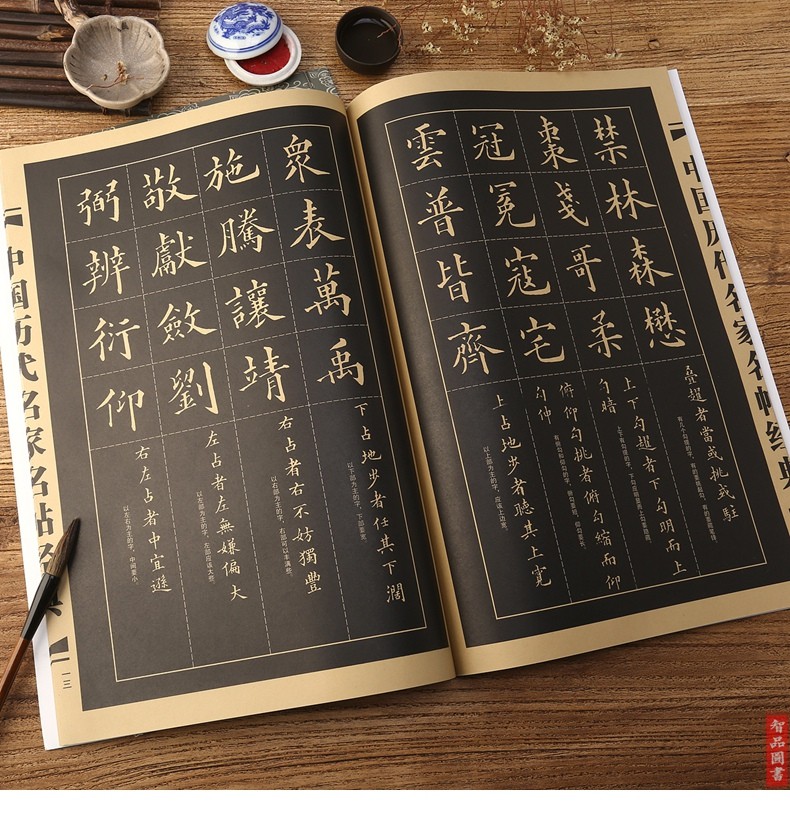 中国历代名家名帖经典
禁林森懋
疊趯者當或挑或駐
棗戔哥柔
上下勾趯者下勾明而上
勾暗
冠冕寇宅
俯仰勾挑者俯勾縮而仰
勾伸
雲普皆齊
上占地步者聽其上寬
以上部为主的字，应该上边宽。
眾表萬禹
下占地步者任其下濶
以下部为主的字，下部要宽。
施騰讓靖
右占者右不妨獨豐
以右部为主的字，右部可以丰满些。
敬獻斂劉
左占者左無嫌偏大
以左部为主的字，左部应该大些。
弼辨衍仰
右左占者中宜遜
以左右为主的字，中间要小。
中国历代名家名帖经典
一三
智品圖書